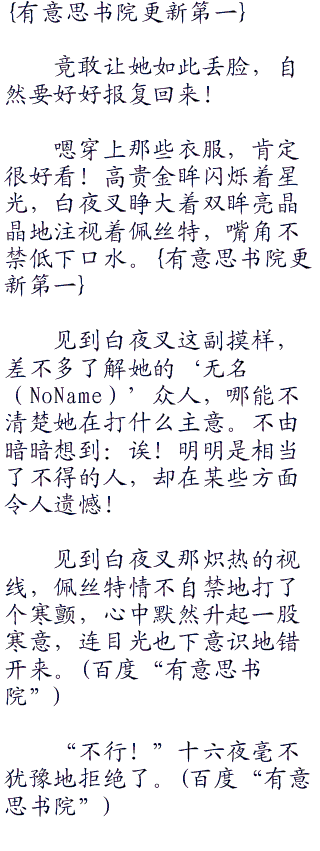 {有意思书院更新第一}
竟敢让她如此丢脸，自
然要好好报复回来！
嗯穿上那些衣服，肯定
很好看！高贵金眸闪烁着星
光，白夜叉睁大着双眸亮晶
晶地注视着佩丝特，嘴角不
禁低下口水。{有意思书院更
新第一}
见到白夜叉这副摸样，
差不多了解她的‘无名
（NoName）’众人，哪能不
清楚她在打什么主意。不由
暗暗想到：诶！明明是相当
了不得的人，却在某些方面
令人遗憾！
见到白夜叉那炽热的视
线，佩丝特情不自禁地打了
个寒颤，心中默然升起一股
寒意，连目光也下意识地错
开来。(百度“有意思书
院”)
“不行！”十六夜毫不
犹豫地拒绝了。(百度“有意
思书院”)